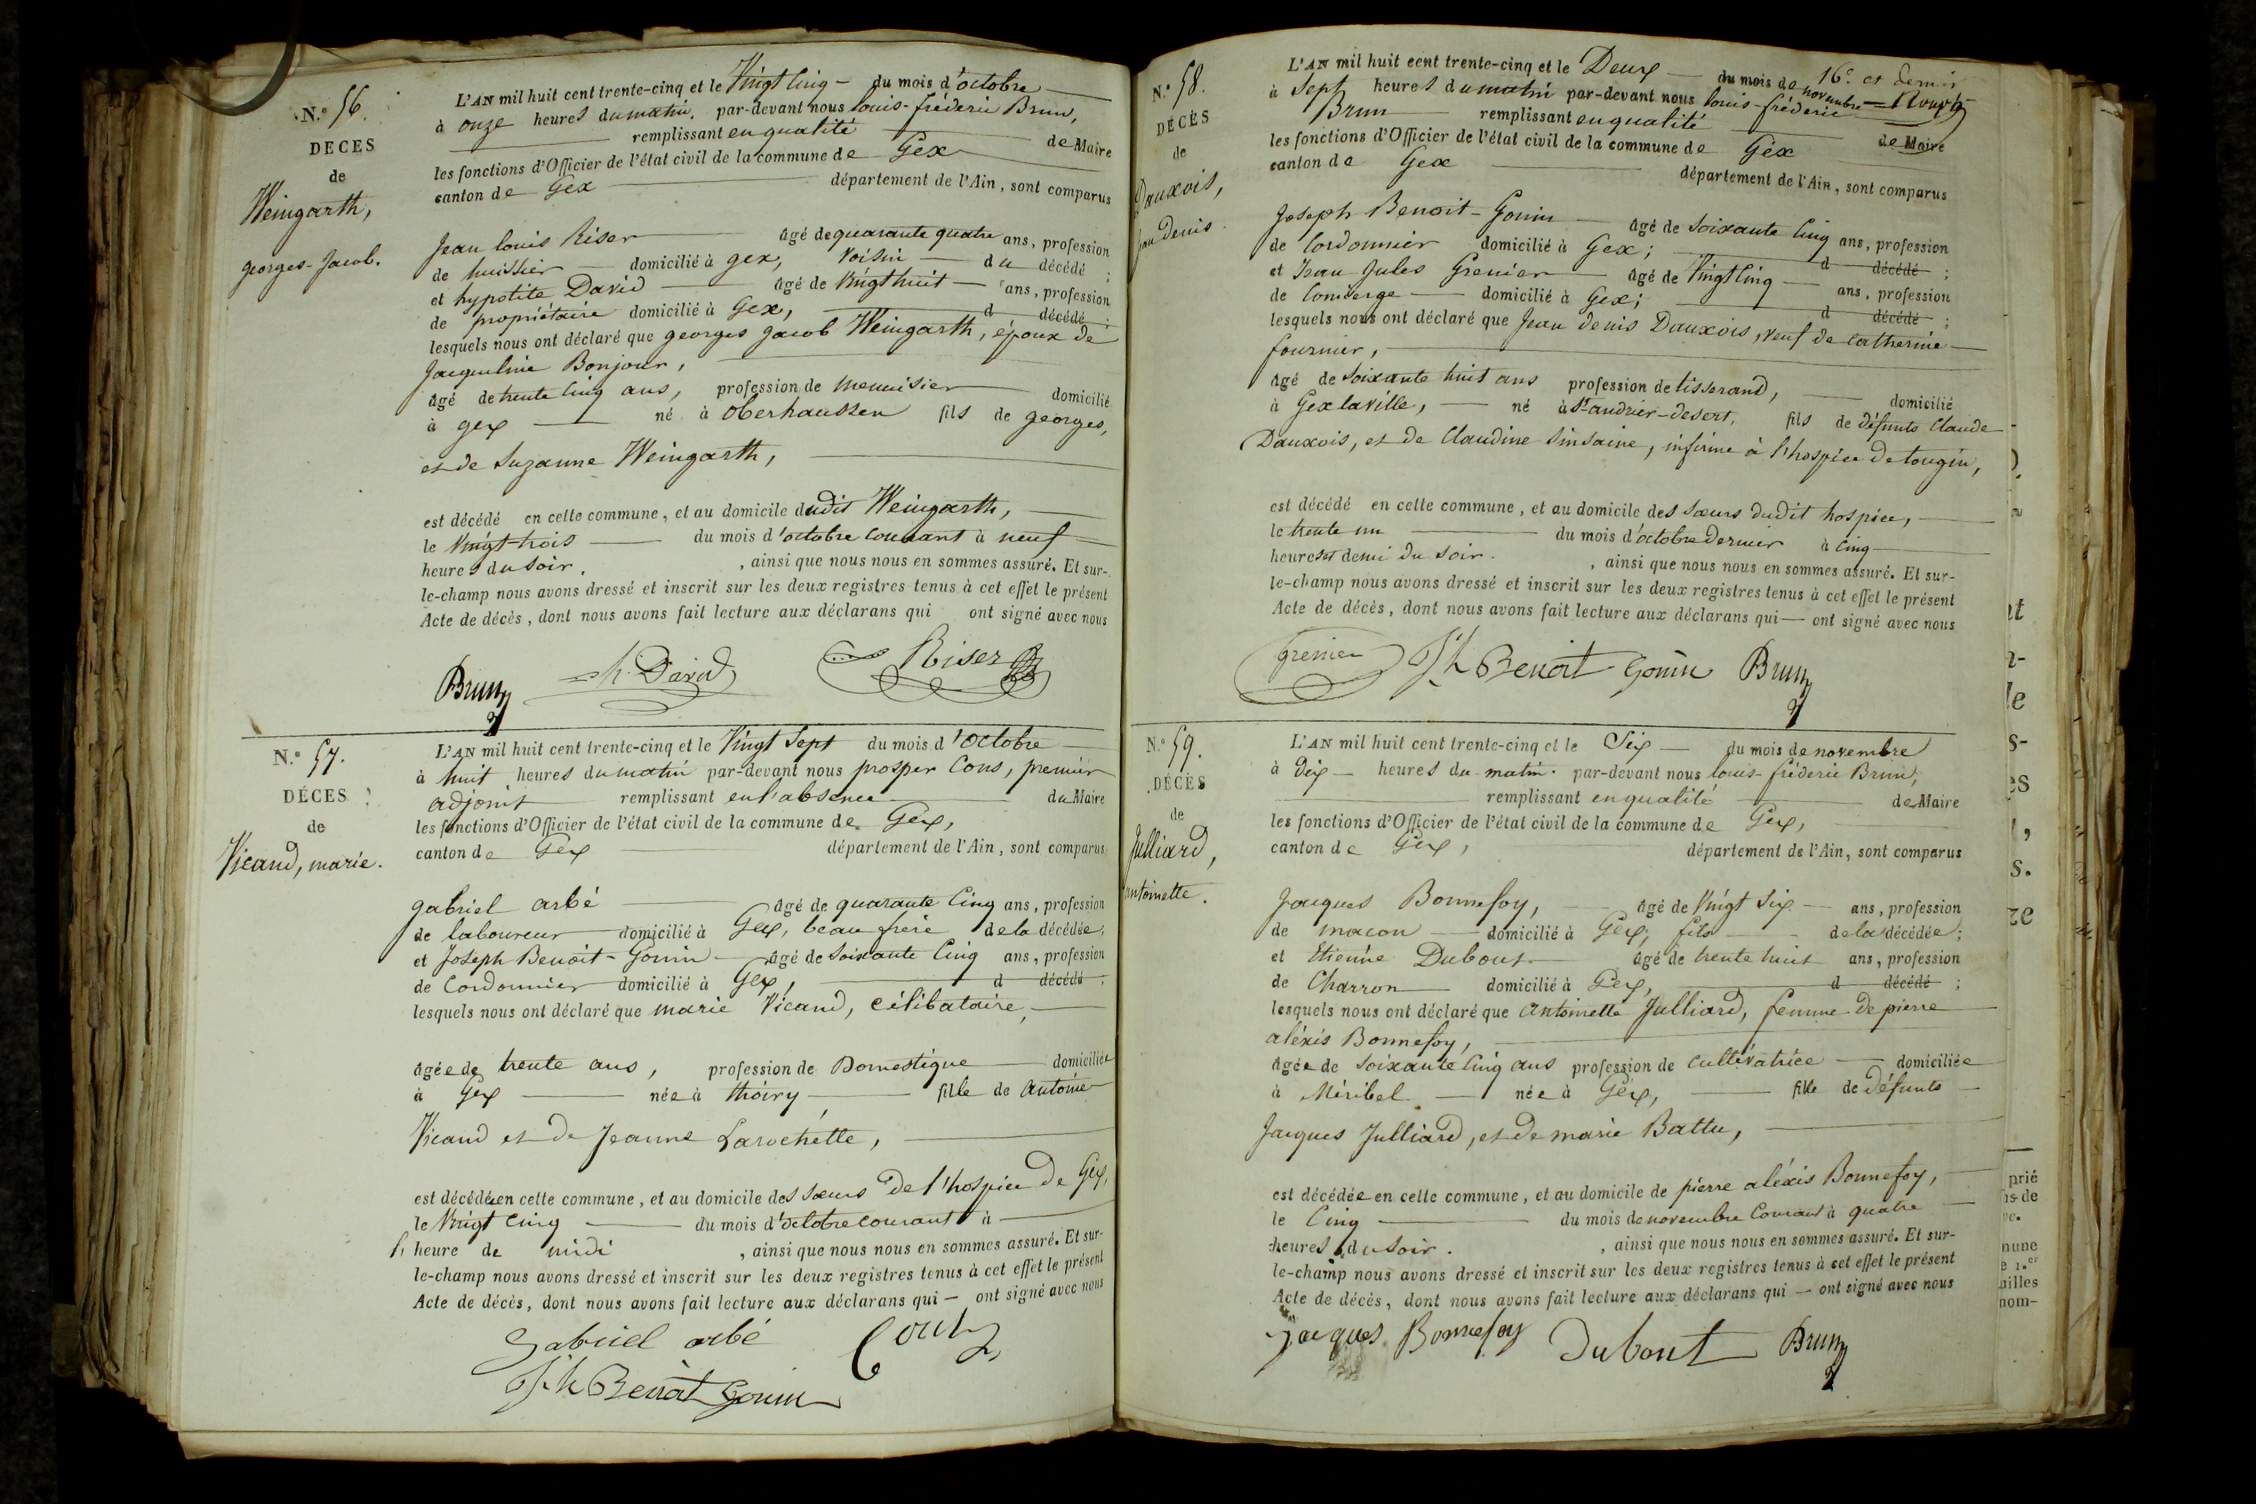 N.º 56.
DECES
de
Weingarth,
georges-Jacob.
L'AN mil huit cent trente-cinq et le Vingt Cinq — du mois d'octobre
à onze heures du matin, par-devant nous louis-fréderic Brun,
remplissant en qualité de Maire
les fonctions d'Officier de l'état civil de la commune de Gex
canton de Gex département de l'Ain, sont comparus
Jean louis Riser âgé de quarante quatre ans, profession
de huissier domicilié à gex, Voisin du décédé ;
et hypolite David âgé de Vingt huit ans, profession
de propriétaire domicilié à Gex, d décédé ;
lesquels nous ont déclaré que georges Jacob Weingarth, époux de
Jacqueline Bonjour,
âgé de trente Cinq ans, profession de menuisier domicilié
à gex né à Oberhaussen fils de georges,
et de Suzanne Weingarth,
est décédé en cette commune, et au domicile dudit Weingarth,
le Vingt-trois du mois d'octobre courant à neuf
heures du soir. , ainsi que nous nous en sommes assuré. Et sur-
le-champ nous avons dressé et inscrit sur les deux registres tenus à cet effet le présent
Acte de décès, dont nous avons fait lecture aux déclarans qui ont signé avec nous
Brun h. David Riser
N.º 57.
DÉCES
de
Vicand, marie.
L'AN mil huit cent trente-cinq et le Vingt Sept du mois d'octobre
à huit heures du matin par-devant nous prosper Cons, premier
adjoint remplissant en l'absence du Maire
les fonctions d'Officier de l'état civil de la commune de Gex,
canton de Gex département de l'Ain, sont comparus
gabriel arbé âgé de quarante Cinq ans, profession
de laboureur domicilié à Gex, beau frère de la décédée ;
et Joseph Benoit-Gonin âgé de soixante Cinq ans, profession
de Cordonnier domicilié à Gex, d décédé ;
lesquels nous ont déclaré que marie Vicand, célibataire,
âgée de trente ans, profession de Domestique domiciliée
à Gex née à thoiry fille de antoine
Vicand et de Jeanne Larochette,
est décédée en cette commune, et au domicile des sœurs De l'hospice de Gex,
le Vingt Cinq du mois d'octobre courant à
heure de midi , ainsi que nous nous en sommes assuré. Et sur-
le-champ nous avons dressé et inscrit sur les deux registres tenus à cet effet le présent
Acte de décès, dont nous avons fait lecture aux déclarans qui — ont signé avec nous
Gabriel arbé Cons
Jh Benoit Gonin
N.º 58.
DÉCÈS
de
Dauxois,
Jean Denis.
16e et demi
L'AN mil huit cent trente-cinq et le Deux — du mois de novembre
à Sept heures du matin par-devant nous louis-fréderic
Brun remplissant en qualité de Maire
les fonctions d'Officier de l'état civil de la commune de Gex
canton de Gex département de l'Ain, sont comparus
Joseph Benoit-Gonin âgé de soixante Cinq ans, profession
de Cordonnier domicilié à Gex ; d décédé ;
et Jean Jules Grenier âgé de Vingt Cinq ans, profession
de Concierge domicilié à Gex ; d décédé ;
lesquels nous ont déclaré que Jean denis Dauxois, Veuf de Catherine
fournier,
âgé de soixante huit ans profession de tisserand, domicilié
à Gex la Ville, né à St andrier-desert, fils de défunts Claude
Dauxois, et de Claudine Sinsaine, infirme à l'hospice de tougin,
est décédé en cette commune, et au domicile des sœurs dudit hospice,
le trente un du mois d'octobre dernier à Cinq
heures et demi du soir. , ainsi que nous nous en sommes assuré. Et sur-
le-champ nous avons dressé et inscrit sur les deux registres tenus à cet effet le présent
Acte de décès, dont nous avons fait lecture aux déclarans qui — ont signé avec nous
Grenier Jh Benoit Gonin Brun
N.º 59.
DÉCÈS
de
Julliard,
antoinette.
L'AN mil huit cent trente-cinq et le Six — du mois de novembre
à Dix heures du matin. par-devant nous louis-fréderic Brun,
remplissant en qualité de Maire
les fonctions d'Officier de l'état civil de la commune de Gex,
canton de Gex, département de l'Ain, sont comparus
Jacques Bonnefoy, âgé de Vingt Six ans, profession
de macon domicilié à Gex, fils de la décédée ;
et Etienne Dubout âgé de trente huit ans, profession
de Charron domicilié à Gex, d décédé ;
lesquels nous ont déclaré que Antoinette Julliard, femme de pierre
aléxis Bonnefoy,
âgée de soixante Cinq ans profession de cultivatrice domiciliée
à Méribel née à Gex, fille de Défunts
Jacques Julliard, et de marie Battu,
est décédée en cette commune, et au domicile de pierre aléxis Bonnefoy,
le Cinq du mois de novembre Courant à quatre
heures du soir. , ainsi que nous nous en sommes assuré. Et sur-
le-champ nous avons dressé et inscrit sur les deux registres tenus à cet effet le présent
Acte de décès, dont nous avons fait lecture aux déclarans qui — ont signé avec nous
Jacques Bonnefoy Dubout Brun